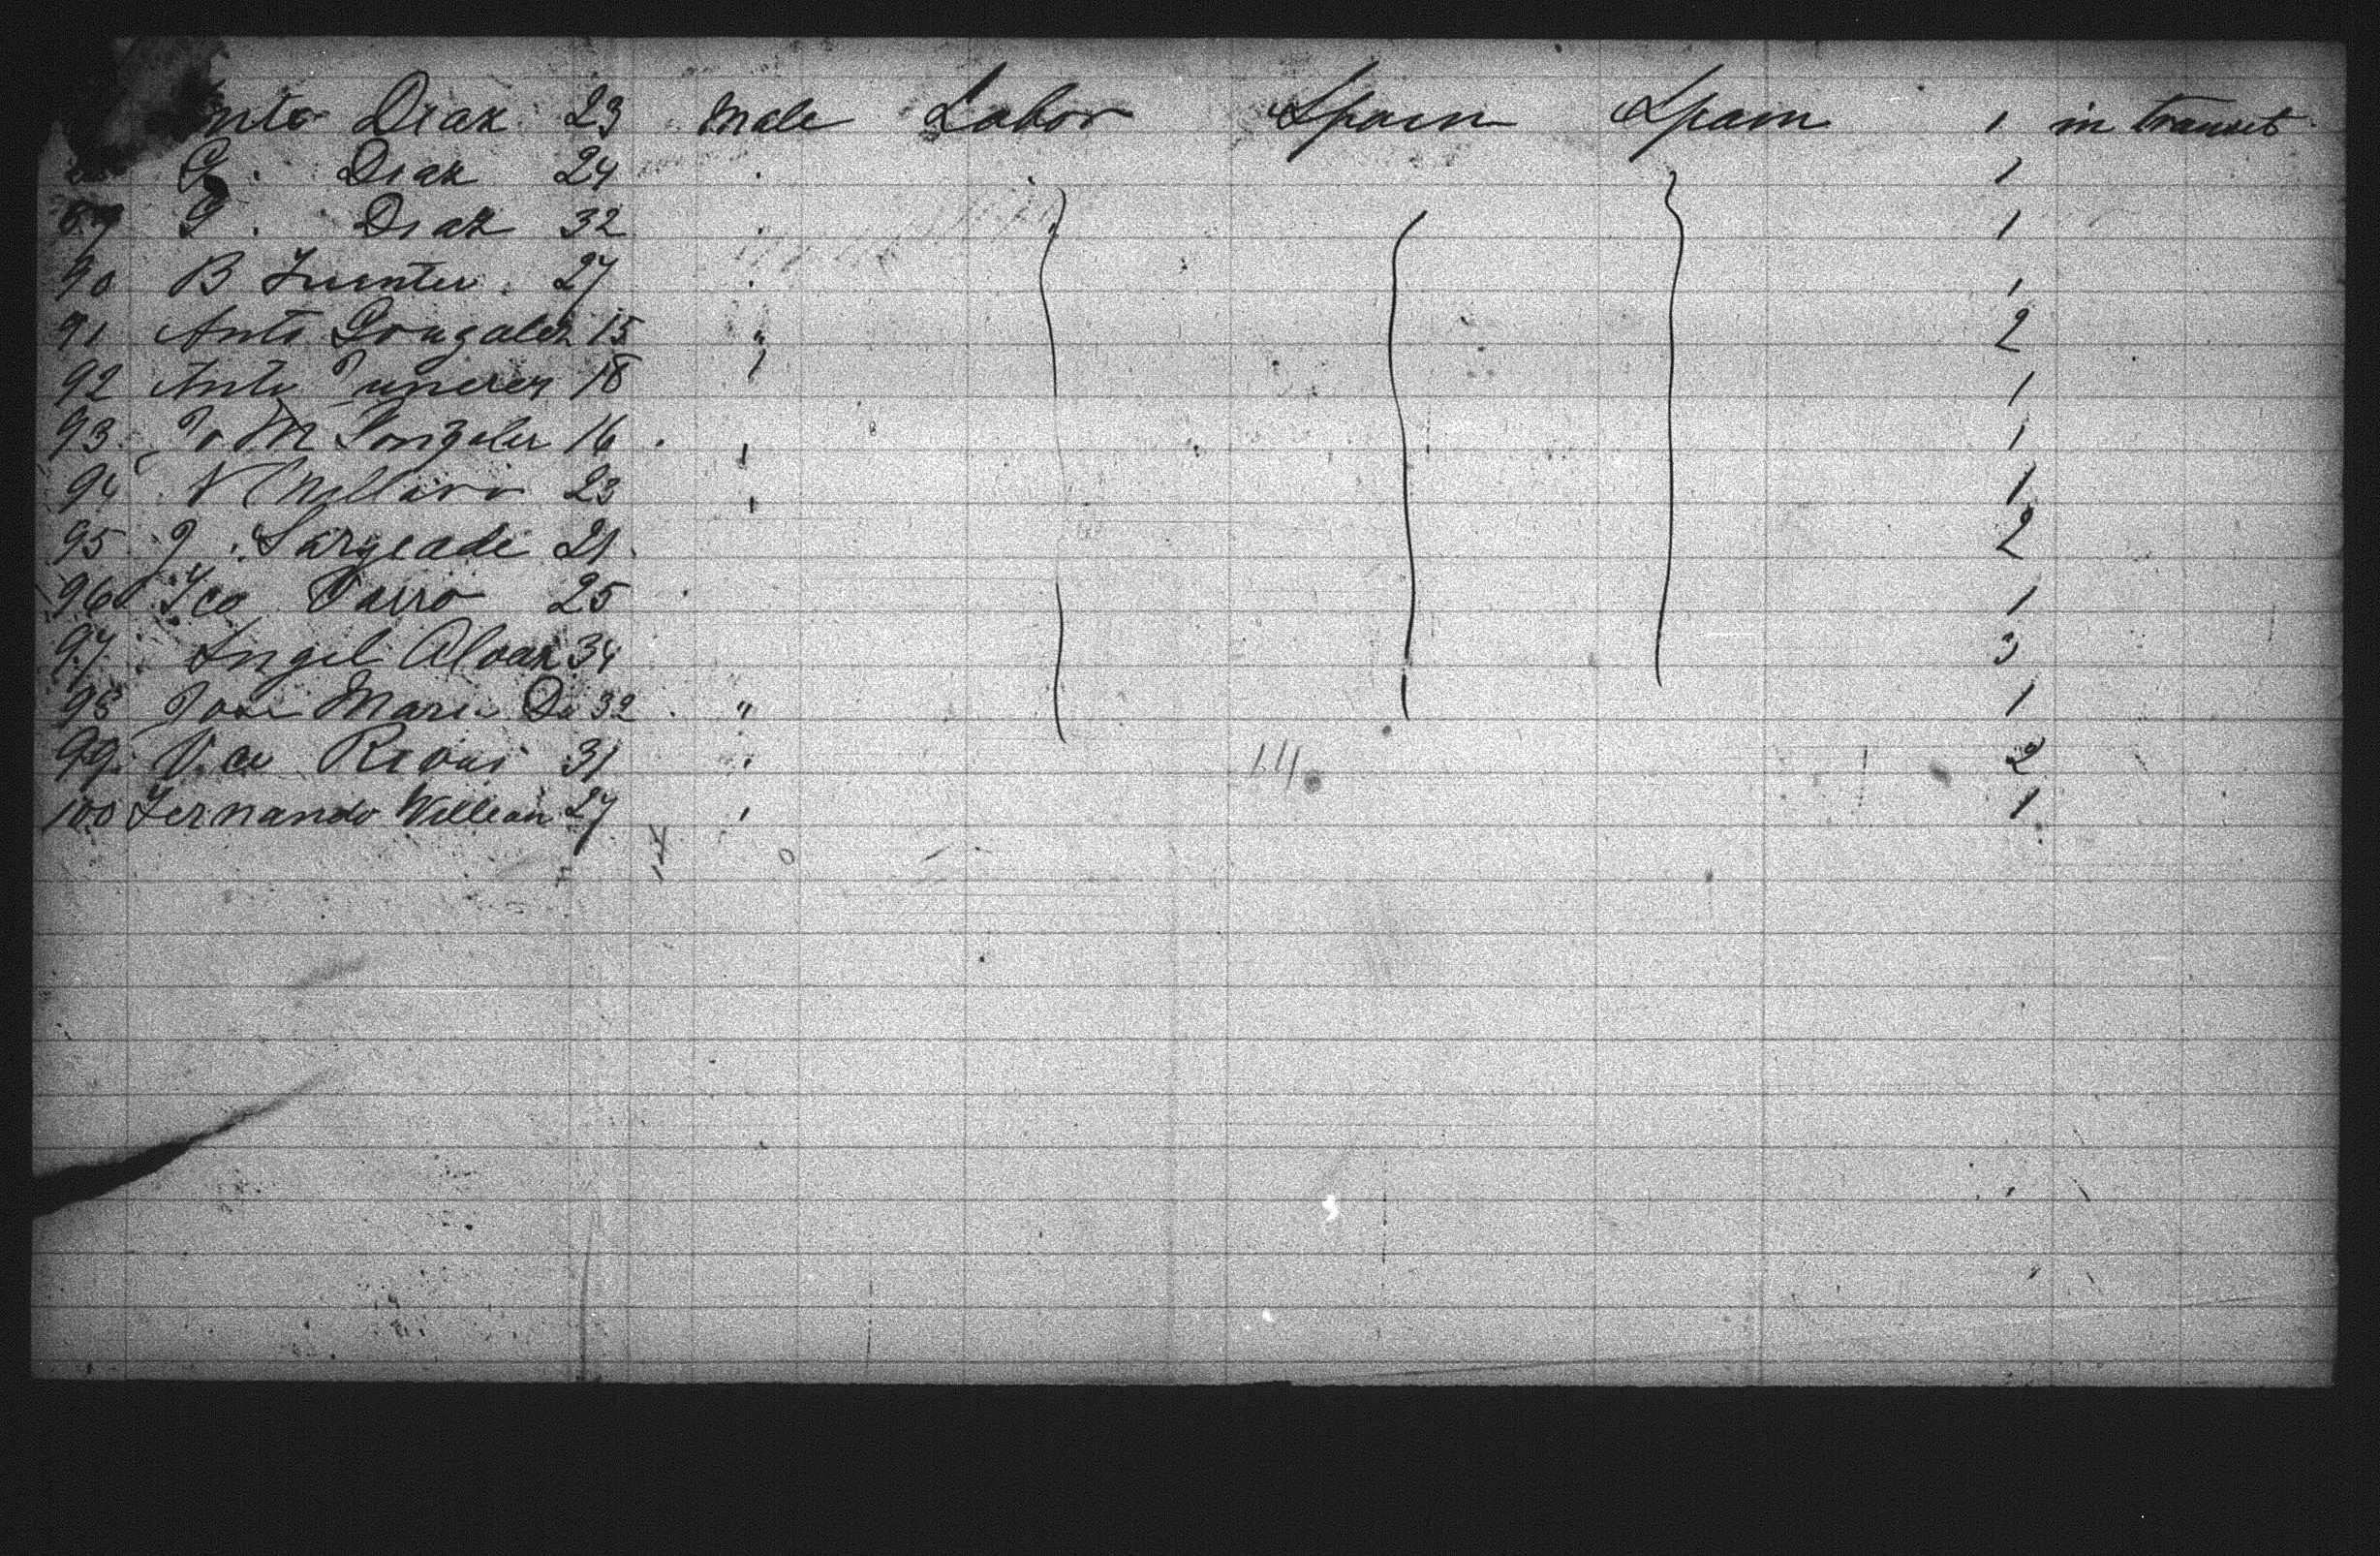 Anto Diaz 23 male Labor Spain Spain 1 in transit
G. Diaz 24 1
89 G. Diaz 32 1
90 B Fuenter 27 1
91 Anto Gonzalez 15 " 2
92 Anto 18 1
93 M Gonzaler 16 1
94 23 1
95 J. Sargeade 21 2
96 Fco Parro 25 1
97 Angel Aloaz 34 3
98 Jose Maria Di 32 " 1
99 31 " 2
100 Fernando Willean 27 1